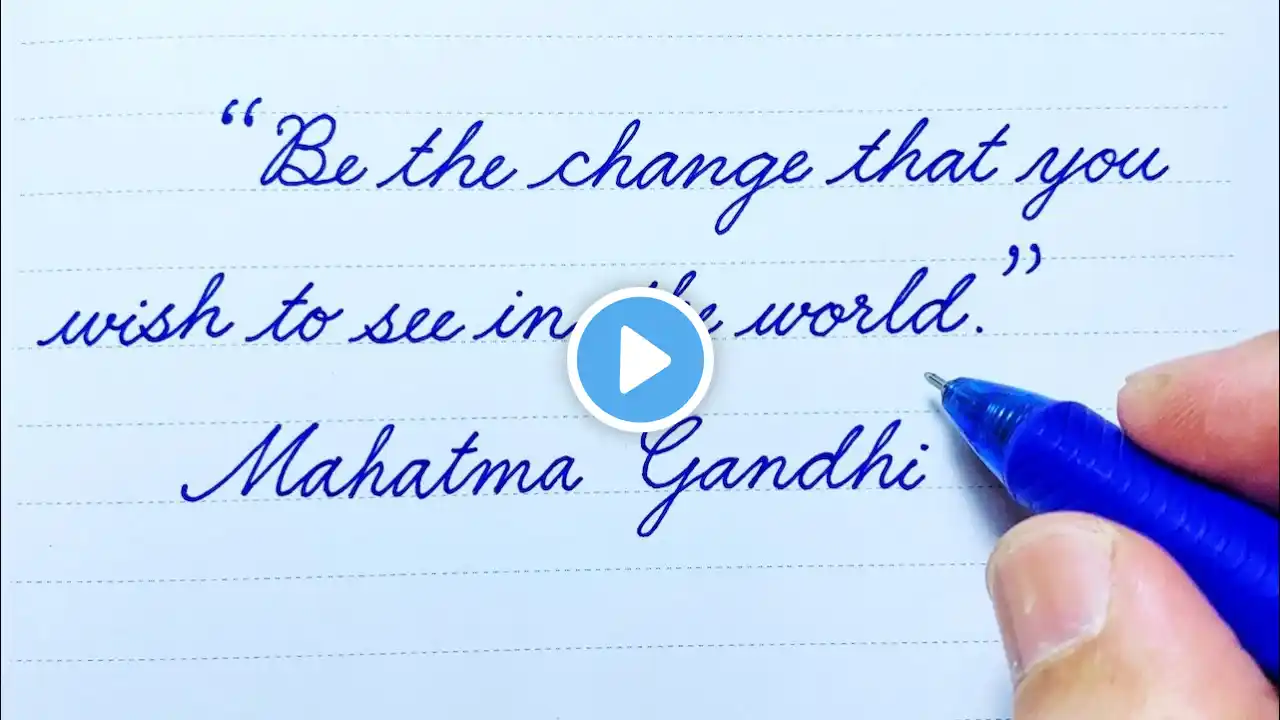 “Be the change that you
wish to see in the world.”
Mahatma Gandhi